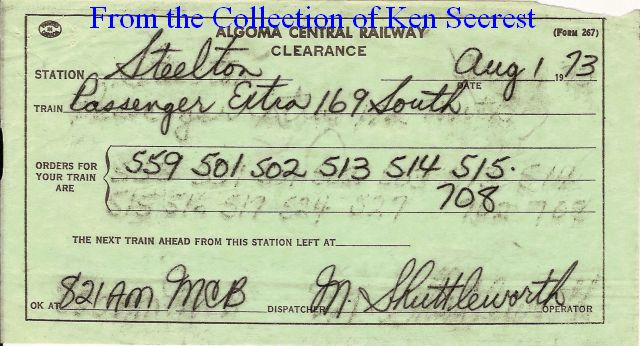 From the Collection of Ken Secrest
ALGOMA CENTRAL RAILWAY (FORM 267)
CLEARANCE
STATION Steelton Aug 1 1973
DATE
TRAIN Passenger Extra 169 South
ORDERS FOR YOUR TRAIN ARE 559 501 502 513 514 515.
708
THE NEXT TRAIN AHEAD FROM THIS STATION LEFT AT
OK AT 821 AM MCB DISPATCHER M. Shuttleworth OPERATOR